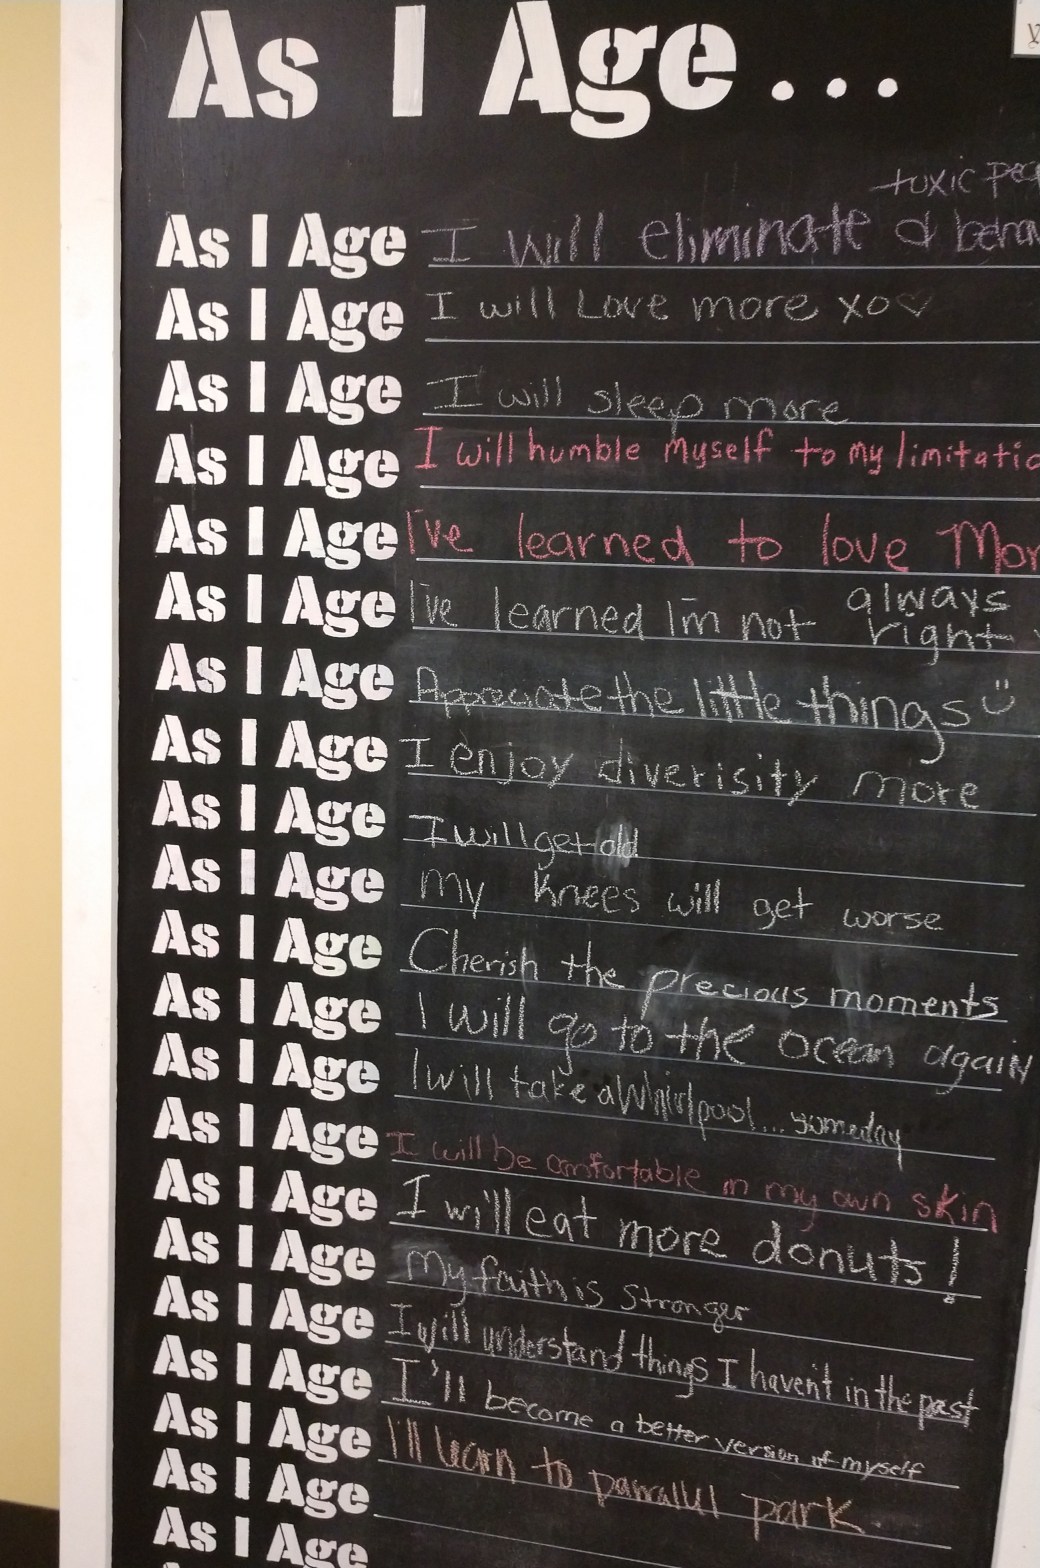 As I Age....
toxic
As I Age I will eliminate &
As I Age I will Love more xo♡
As I Age I will sleep more
As I Age I will humble myself to my
As I Age I've learned to love
As I Age I've learned I'm not always right
As I Age Appreciate the little things
As I Age I enjoy diverisity more
As I Age I will get old
As I Age my knees will get worse
As I Age Cherish the precious moments
As I Age I will go to the ocean again
As I Age I will take a Whirlpool... someday
As I Age I will be comfortable in my own skin
As I Age I will eat more donuts!
As I Age My faith is stronger
As I Age I will understand things I haven't in the past
As I Age I'll become a better version of myself
As I Age I'll learn to parrallel park.
As I Age
As I Age